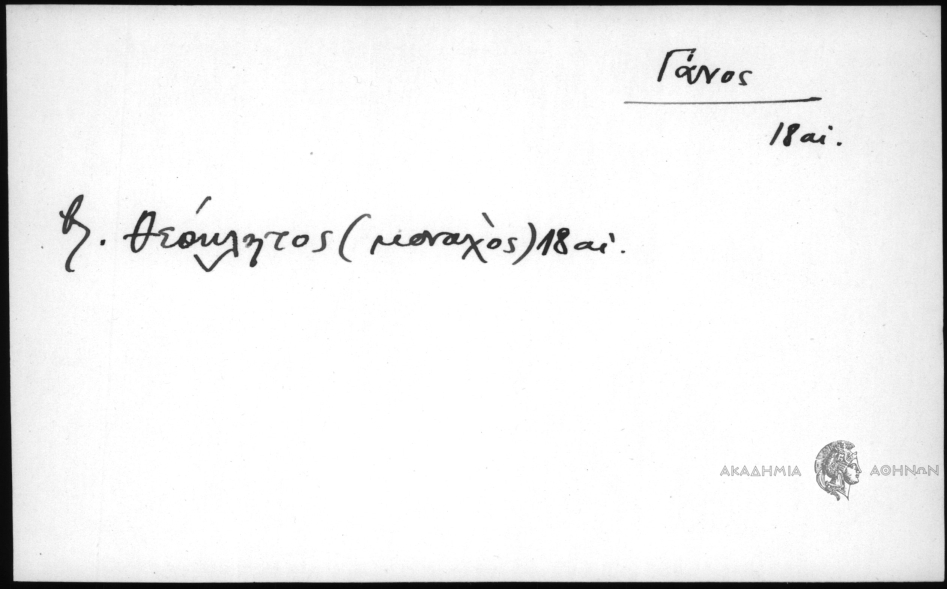 Γάνος
18 αἰ.
βλ. Θεόκλητος (μοναχὸς) 18 αἰ.
ΑΚΑΔΗΜΙΑ ΑΘΗΝΩΝ